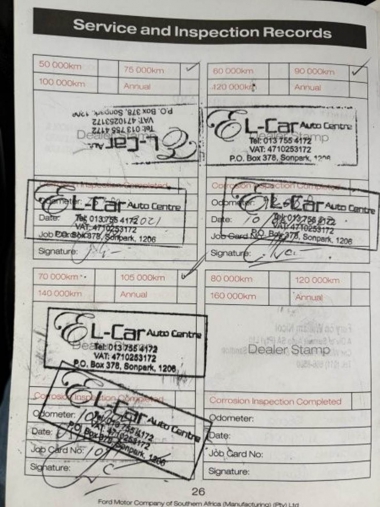 Service and Inspection Records
50 000km 75 000km
100 000km Annual
60 000km 90 000km
120 000km Annual
EL-Car Au
Tel: 013 755 4172
VAT: 4710253172
P.O. Box 378, Sonpark, 1206
Dealer
EL-Car Auto Centre
Tel: 013 755 4172
VAT: 4710253172
P.O. Box 378, Sonpark,
Inspection Completed
Corrosion Inspection Completed
EL-Car Auto Centre
Tel: 013 755 4172
VAT: 4710253172
P.O. Box 378, Sonpark, 1206
Odometer:
Date:
Job Card
Signature:
Auto Centre
Tel: 013 755 4172
VAT: 4710253172
P.O. Box 378, Sonpark, 1206
Date: 10
Job Card No:
Signature:
70 000km 105 000km
140 000km Annual
80 000km 120 000km
160 000km Annual
EL-Car Auto Centre
Tel: 013 755 4172
VAT: 4710253172
P.O. Box 378, Sonpark, 1206
Dealer Stamp
Completed
Corrosion Inspection Completed
Car Auto Centre
Tel: 013 755 4172
VAT: 4710253172
P.O. Box 378, Sonpark, 1206
Odometer:
Date:
Job Card No:
Signature:
Odometer:
Date:
Job Card No:
Signature:
26
Ford Motor Company of Southern Africa (Manufacturing) (Pty) Ltd